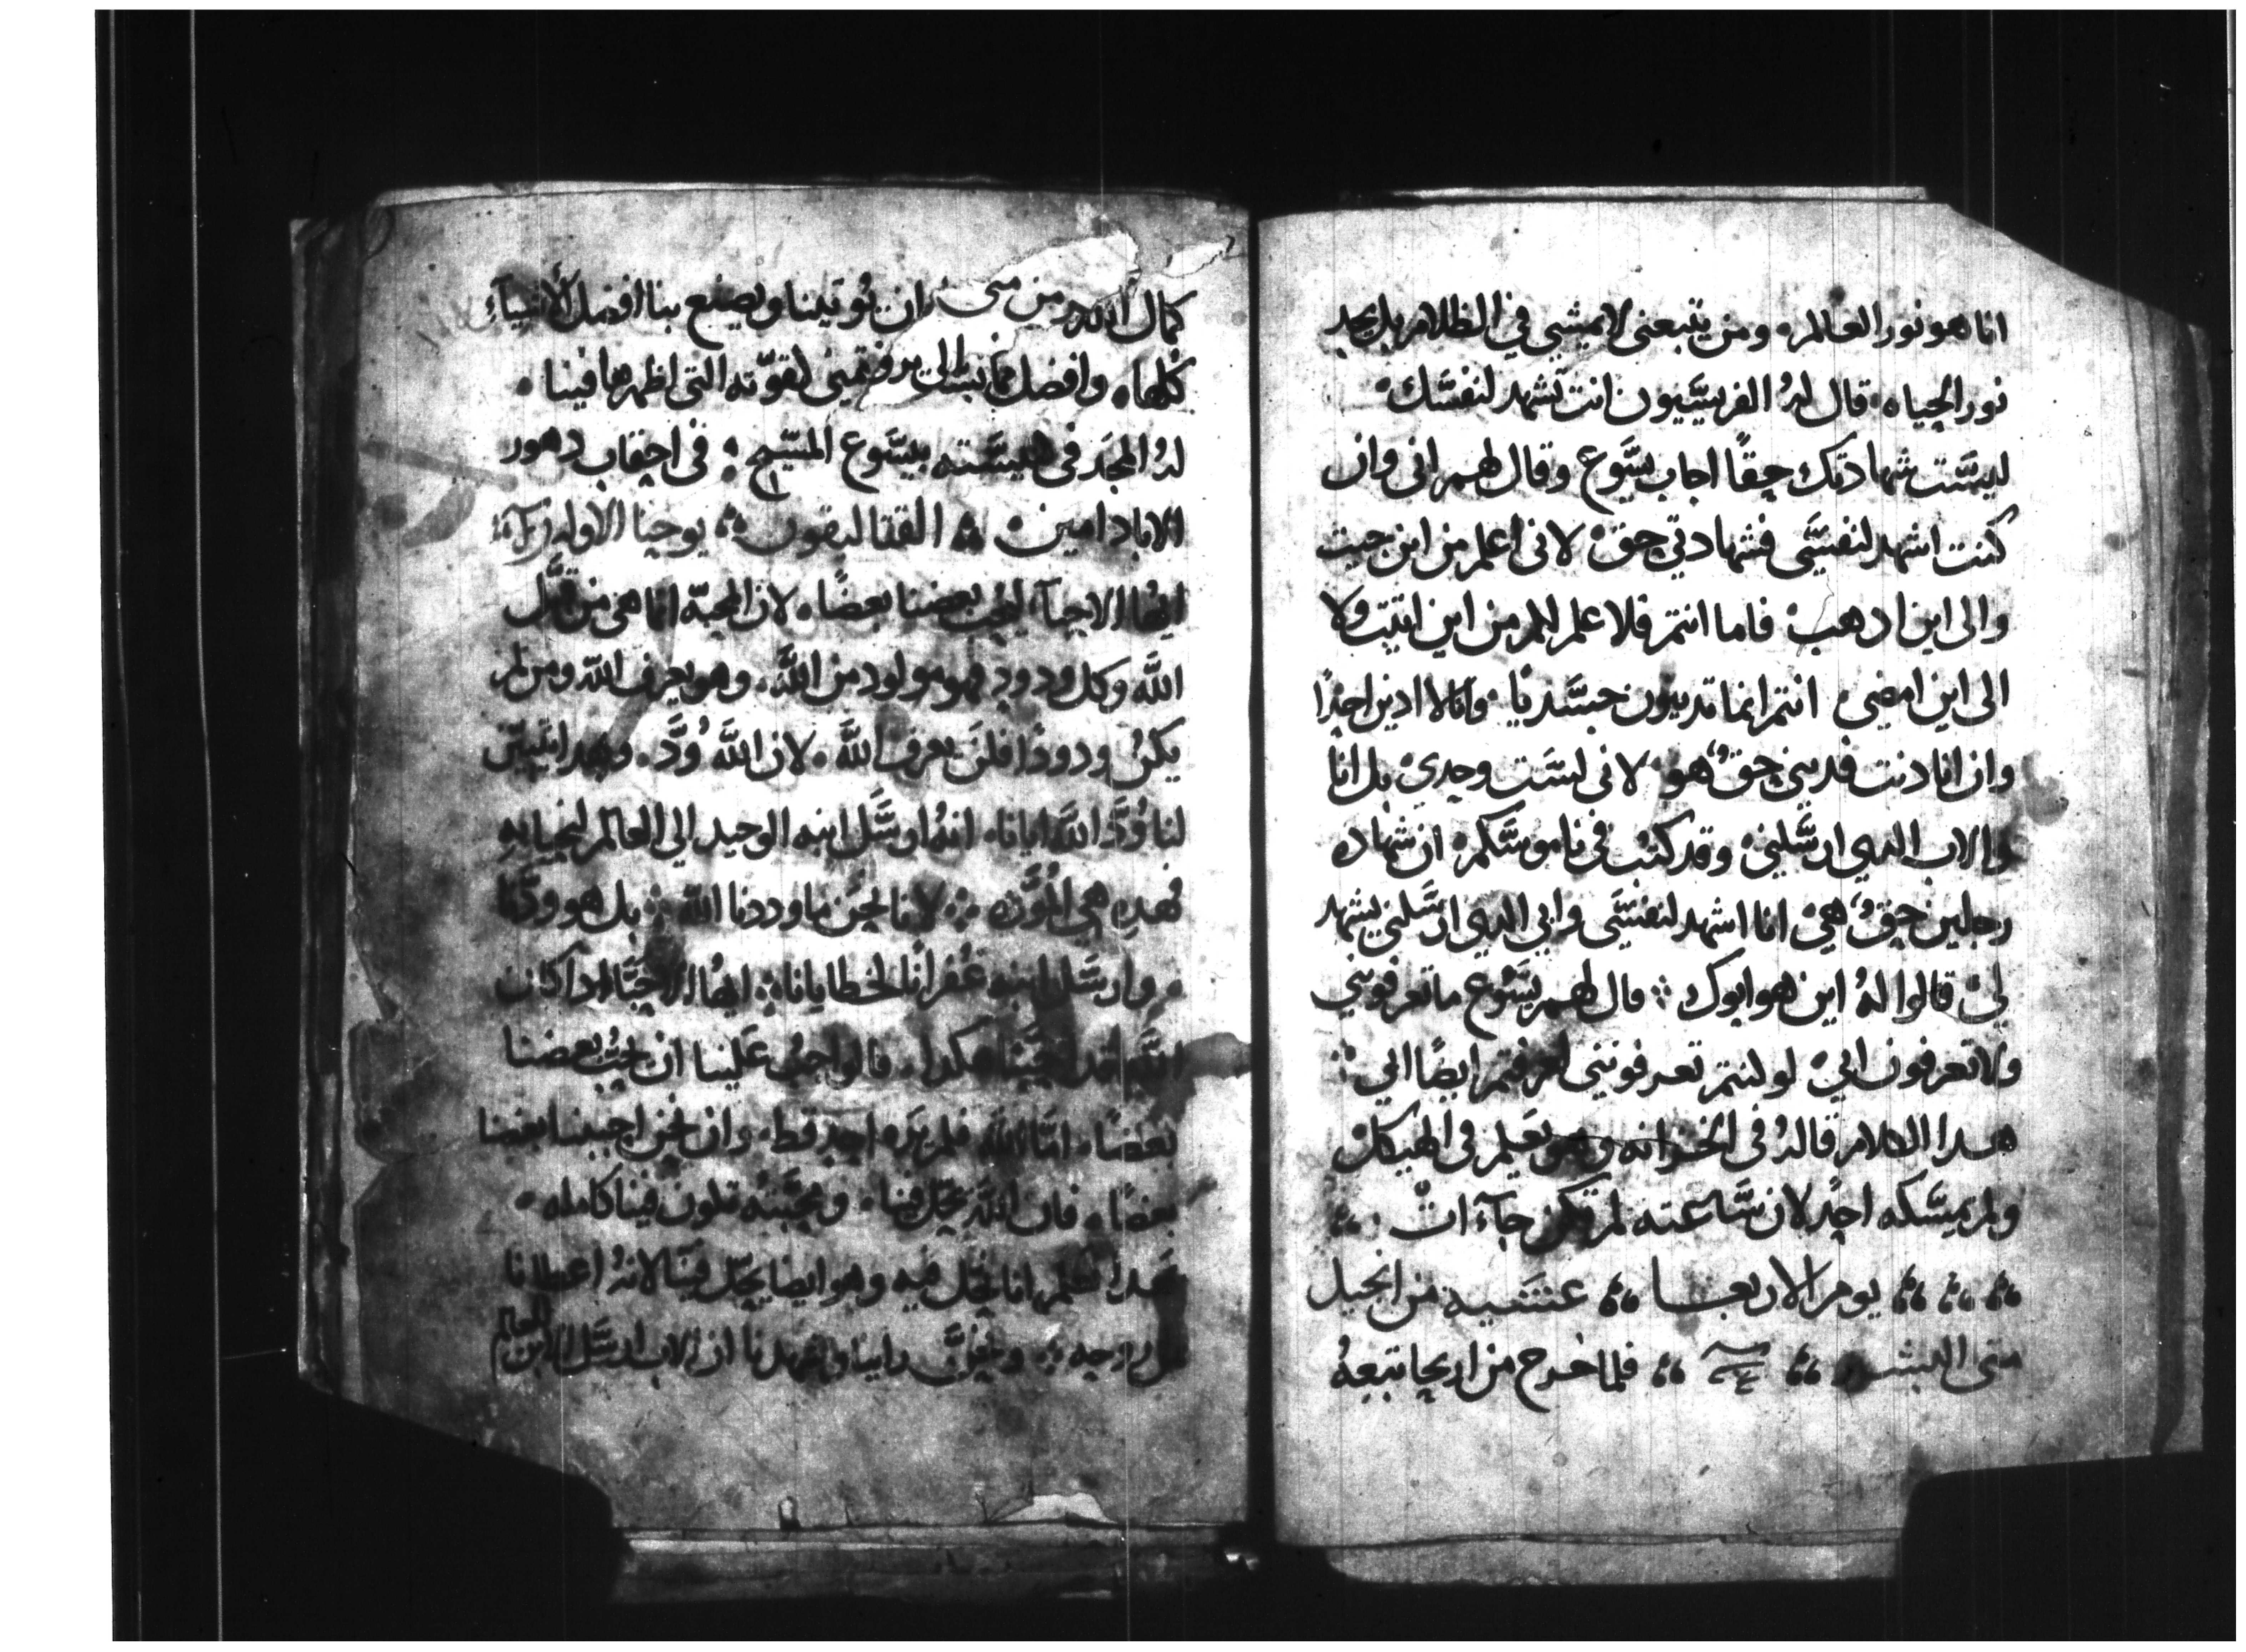 انا هو نور العالم. ومن يتبعني لا يمشي في الظلام بل يجد
نور الحياه. قال لهُ الفريسَيون انت تشهد لنفسَك.
ليسَت شهادتك حقًا اجاب يسَوع وقال لهم اني وان
كنت اشهد لنفسَي فشهادتي حق. لاني اعلم من اين جيت
والى اين ادهب. فاما انتم فلا علم لكم من اين اتيت ولا
الى اين امضي. انتم انما تدينون جسَدنا. وانا لا ادين احدًا
وان انا دنت فديني حقٌ هو. لاني لسَت وحدي. بل انا
والاب الدي ارسَلني. وقد كتب في ناموسَكم. ان شهاده
رجلين حقٌ هي. انا اشهد لنفسَي وابي الدي ارسَلني يشهد
لي. قالوا لهُ اين هو ابوك ∴ قال لهم يسَوع ما تعرفوني
ولا تعرفون ابي. لو كنتم تعرفونني لعرفتم ايضًا ابي ∴
هدا الكلام قالهُ في الخزانه وهو يعَلم في الهيكل
ولم يمسَكه احدٌ لان سَاعته لم تكن جآءات ∴
يوم الاربعا عشَيه من انجيل
متى البشير فلما خرج من اريحا تبعهُ
كمال الله من ان يوتينا ويصنع بنا افضل الاشيآء
كلها. وافضل مما نسَال لقوّته التي اظهرها فينا.
لهُ المجَد في كنيسَته بيسَوع المسَيح ∴ في احقاب دهور
الاباد امين. القتاليقون ∴ يوحنا الاوله
ايها الاحبآء ليحب بعضنا بعضًا. لان المحبّه انما هي من قبَل
اللَّه وكل ودود فهو مولود من اللَّه. وهو يعرف اللّه ومن لم
يكنُ ودودًا فلنَ يعرف اللَّه. لان اللَّه وُدَّ. وبهدا يتبيّن
لنا وُدَّ اللَّه ايانا. انهُ ارسَل ابنه الوحيد الي العالم لنحيا بهِ
فهدهِ هي المُودَّه ∴ لا انا نحن ما وددنا اللّه ∴ بل هو ودّنا
وارسَل ابنه غُفرانًا لخطايانا ∴ ايهُا الاحبَّا ادا كان
اللَّه قد احبَّنا هكدا. فالواجبُ عَلينا ان يحُبّ بعضنا
بعضًا. امَّا اللّه فلم يرَه احد قط. وان نحن احببنا بعضنا
بعضًا. فان اللَّه يحّل فينا. ومحبَّتهُ تكون فينا كامله.
بهدا نعَلم انا نحَل فيه وهو ايضا يحّل فينا لانهُ اعطانا
من روحه ∴ ونحنُ راينا وشهدنا ان الاب ارسَل الابن للعالم